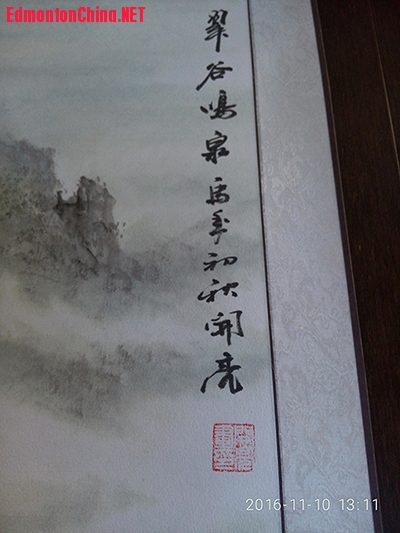 EdmontonChina.NET
翠谷鳴泉 禹年初秋 開亮
2016-11-10 13:11